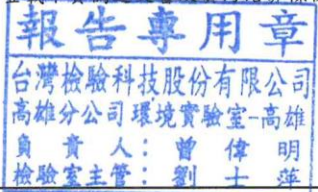 報告專用章
台灣檢驗科技股份有限公司
高雄分公司環境實驗室-高雄
負責人：曾偉明
檢驗室主管：劉士萍